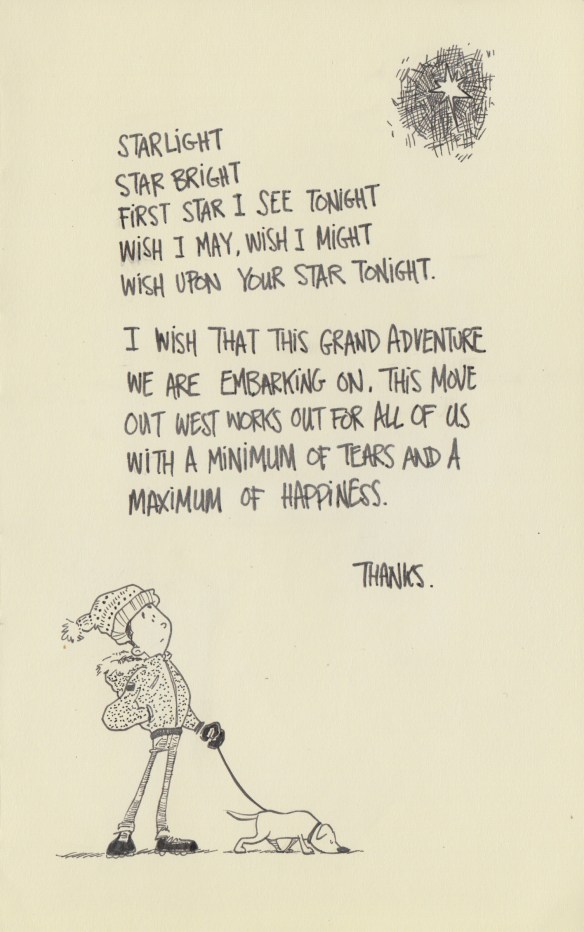 STARLIGHT
STAR BRIGHT
FIRST STAR I SEE TONIGHT
WISH I MAY, WISH I MIGHT
WISH UPON YOUR STAR TONIGHT.
I WISH THAT THIS GRAND ADVENTURE
WE ARE EMBARKING ON. THIS MOVE
OUT WEST WORKS OUT FOR ALL OF US
WITH A MINIMUM OF TEARS AND A
MAXIMUM OF HAPPINESS.
THANKS.